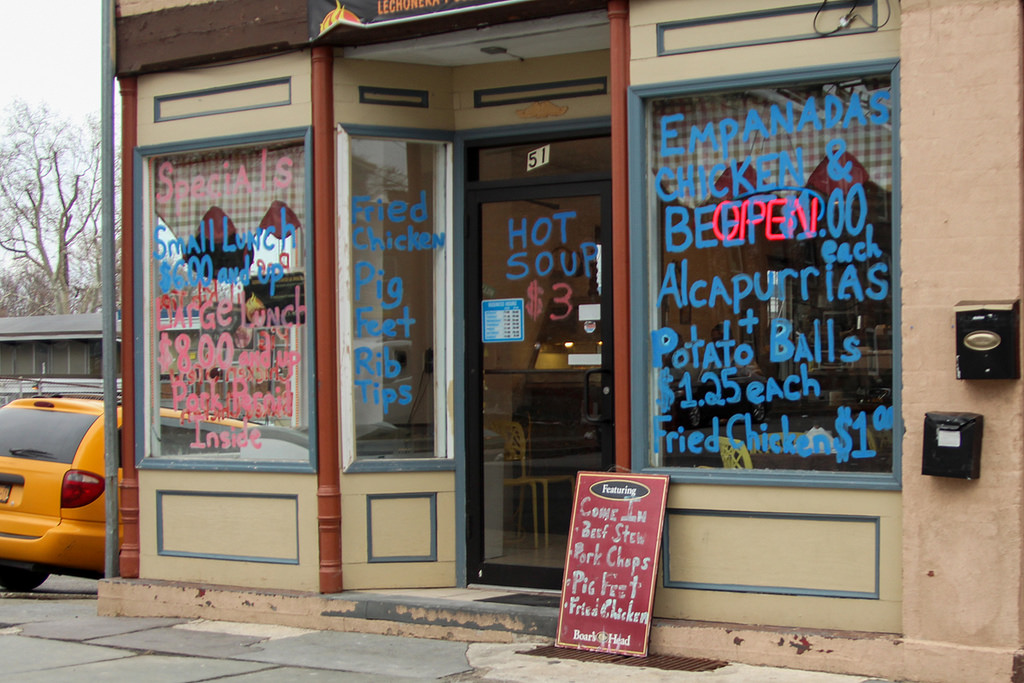 LECHONERA
51
Specials
Small Lunch
$6.00 and up
Large Lunch
$8.00 and up
Pork
Inside
Fried
Chicken
Pig
Feet
Rib
Tips
HOT
SOUP
$3
BUSINESS HOURS
EMPANADAS
CHICKEN &
BEEF
.00
OPEN
each
Alcapurrias
+
Potato Balls
$1.25 each
Fried Chicken $1.00
Featuring
Come In
Beef Stew
Pork Chops
Pig Feet
Fried Chicken
Boar's Head